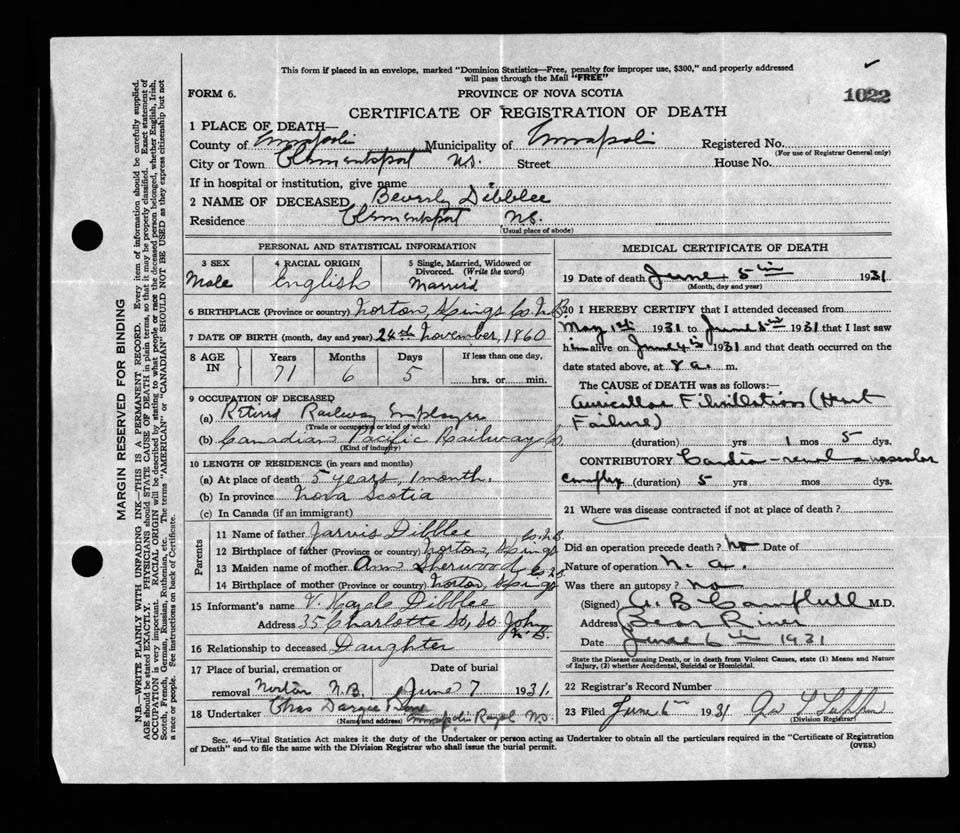 This form if placed in an envelope, marked "Dominion Statistics—Free, penalty for improper use, $300," and properly addressed
will pass through the Mail "FREE"
FORM 6.
PROVINCE OF NOVA SCOTIA
1022
CERTIFICATE OF REGISTRATION OF DEATH
1 PLACE OF DEATH—
County of Annapolis Municipality of Annapolis Registered No.
(For use of Registrar General only)
City or Town Clementsport N.S. Street House No.
If in hospital or institution, give name
2 NAME OF DECEASED Beverly Dibblee
Residence Clementsport N.S.
(Usual place of abode)
PERSONAL AND STATISTICAL INFORMATION
3 SEX
Male
4 RACIAL ORIGIN
English
5 Single, Married, Widowed or
Divorced. (Write the word)
Married
6 BIRTHPLACE (Province or country) Norton, Kings Co. N.B.
7 DATE OF BIRTH (month, day and year) 24th November, 1860
8 AGE IN
Years Months Days If less than one day,
71 6 5 hrs. or min.
9 OCCUPATION OF DECEASED
(a) Retired Railway Employee
(Trade or occupation or kind of work)
(b) Canadian Pacific Railway Co.
(Kind of industry)
10 LENGTH OF RESIDENCE (in years and months)
(a) At place of death 5 years, 1 month.
(b) In province Nova Scotia
(c) In Canada (if an immigrant)
Parents
11 Name of father Jarvis Dibblee
12 Birthplace of father (Province or country) Norton, Kings Co. N.B.
13 Maiden name of mother Ann Sherwood
14 Birthplace of mother (Province or country) Norton, Kings Co. N.B.
15 Informant's name V. Dibblee
Address 35 Charlotte St, St. John N.B.
16 Relationship to deceased Daughter
17 Place of burial, cremation or Date of burial
removal Norton N.B. June 7 1931.
18 Undertaker Chas Dargie & Son
(Name and address) Annapolis Royal N.S.
MEDICAL CERTIFICATE OF DEATH
19 Date of death June 5th 1931
(Month, day and year)
20 I HEREBY CERTIFY that I attended deceased from
May 1st 1931 to June 5th 1931 that I last saw
him alive on June 4th 1931 and that death occurred on the
date stated above, at 8 a. m.
The CAUSE OF DEATH was as follows:—
Auricular Fibrillation (Heart
Failure)
(duration) yrs 1 mos 5 dys.
CONTRIBUTORY Cardio-renal-vascular
(duration) 5 yrs mos dys.
21 Where was disease contracted if not at place of death?
Did an operation precede death? No Date of
Nature of operation N. A.
Was there an autopsy? No
(Signed) B Campbell M.D.
Address Bear River
Date June 6th 1931
State the Disease causing Death, or in death from Violent Causes, state (1) Means and Nature
of Injury, (2) whether Accidental, Suicidal or Homicidal.
22 Registrar's Record Number
23 Filed June 6th 1931
(Division Registrar)
Sec. 46—Vital Statistics Act makes it the duty of the Undertaker or person acting as Undertaker to obtain all the particulars required in the "Certificate of Registration
of Death" and to file the same with the Division Registrar who shall issue the burial permit.
(OVER)
MARGIN RESERVED FOR BINDING
N.B—WRITE PLAINLY WITH UNFADING INK—THIS IS A PERMANENT RECORD. Every item of information should be carefully supplied.
AGE should be stated EXACTLY. PHYSICIANS should STATE CAUSE OF DEATH in plain terms, so that it may be properly classified. Exact statement of
OCCUPATION is very important. RACIAL ORIGIN will be described by stating to what people or race the deceased person belonged, whether English, Irish,
Scotch, French, German, Russian, Ruthenian, etc. The terms "AMERICAN" or "CANADIAN" SHOULD NOT BE USED as they express citizenship but not
a race or people. See instructions on back of Certificate.